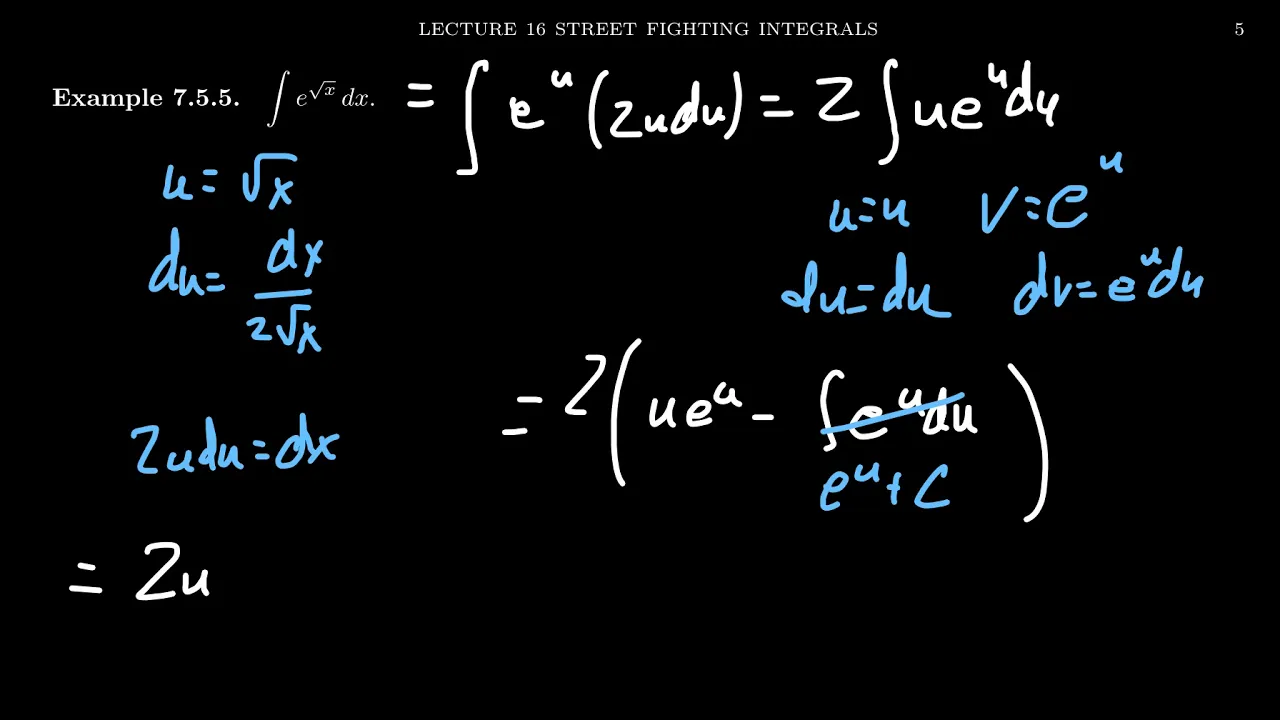 LECTURE 16 STREET FIGHTING INTEGRALS 5
Example 7.5.5. ∫ e^{√x} dx. = ∫ e^u (2u du) = 2 ∫ u e^u du
u = √x
u = u   v = e^u
du = dx / 2√x
du = du   dv = e^u du
= 2 ( u e^u - ∫ e^u du )
2u du = dx
e^u + C
= 2u